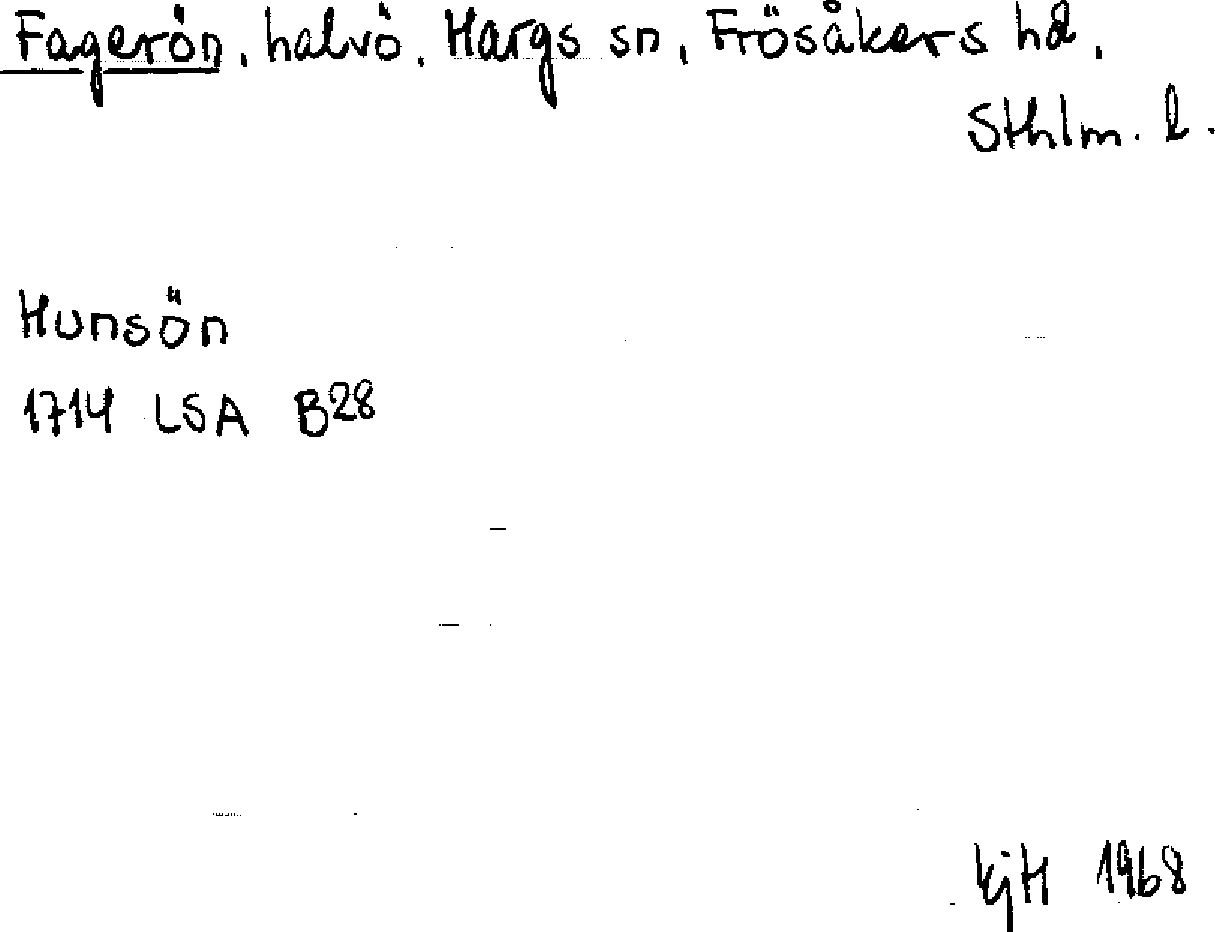 Fagerön, halvö. Hargs sn, Frösåkers hd.
Sthlm. l.
Hunsön
1714 LSA B28
kjH 1968